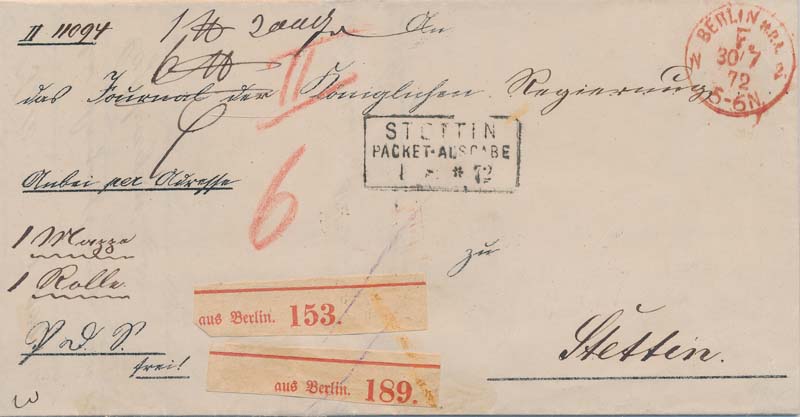 II 11094
An
das Journal der Königlichen Regierung
BERLIN
F.
30/7
72
5-6N.
STETTIN
PACKET-AUSGABE
72
II
6
Anbei per Adresse
1 Mappe
1 Rolle
zu
aus Berlin. 153.
P. d. S.
frei!
Stettin.
aus Berlin. 189.